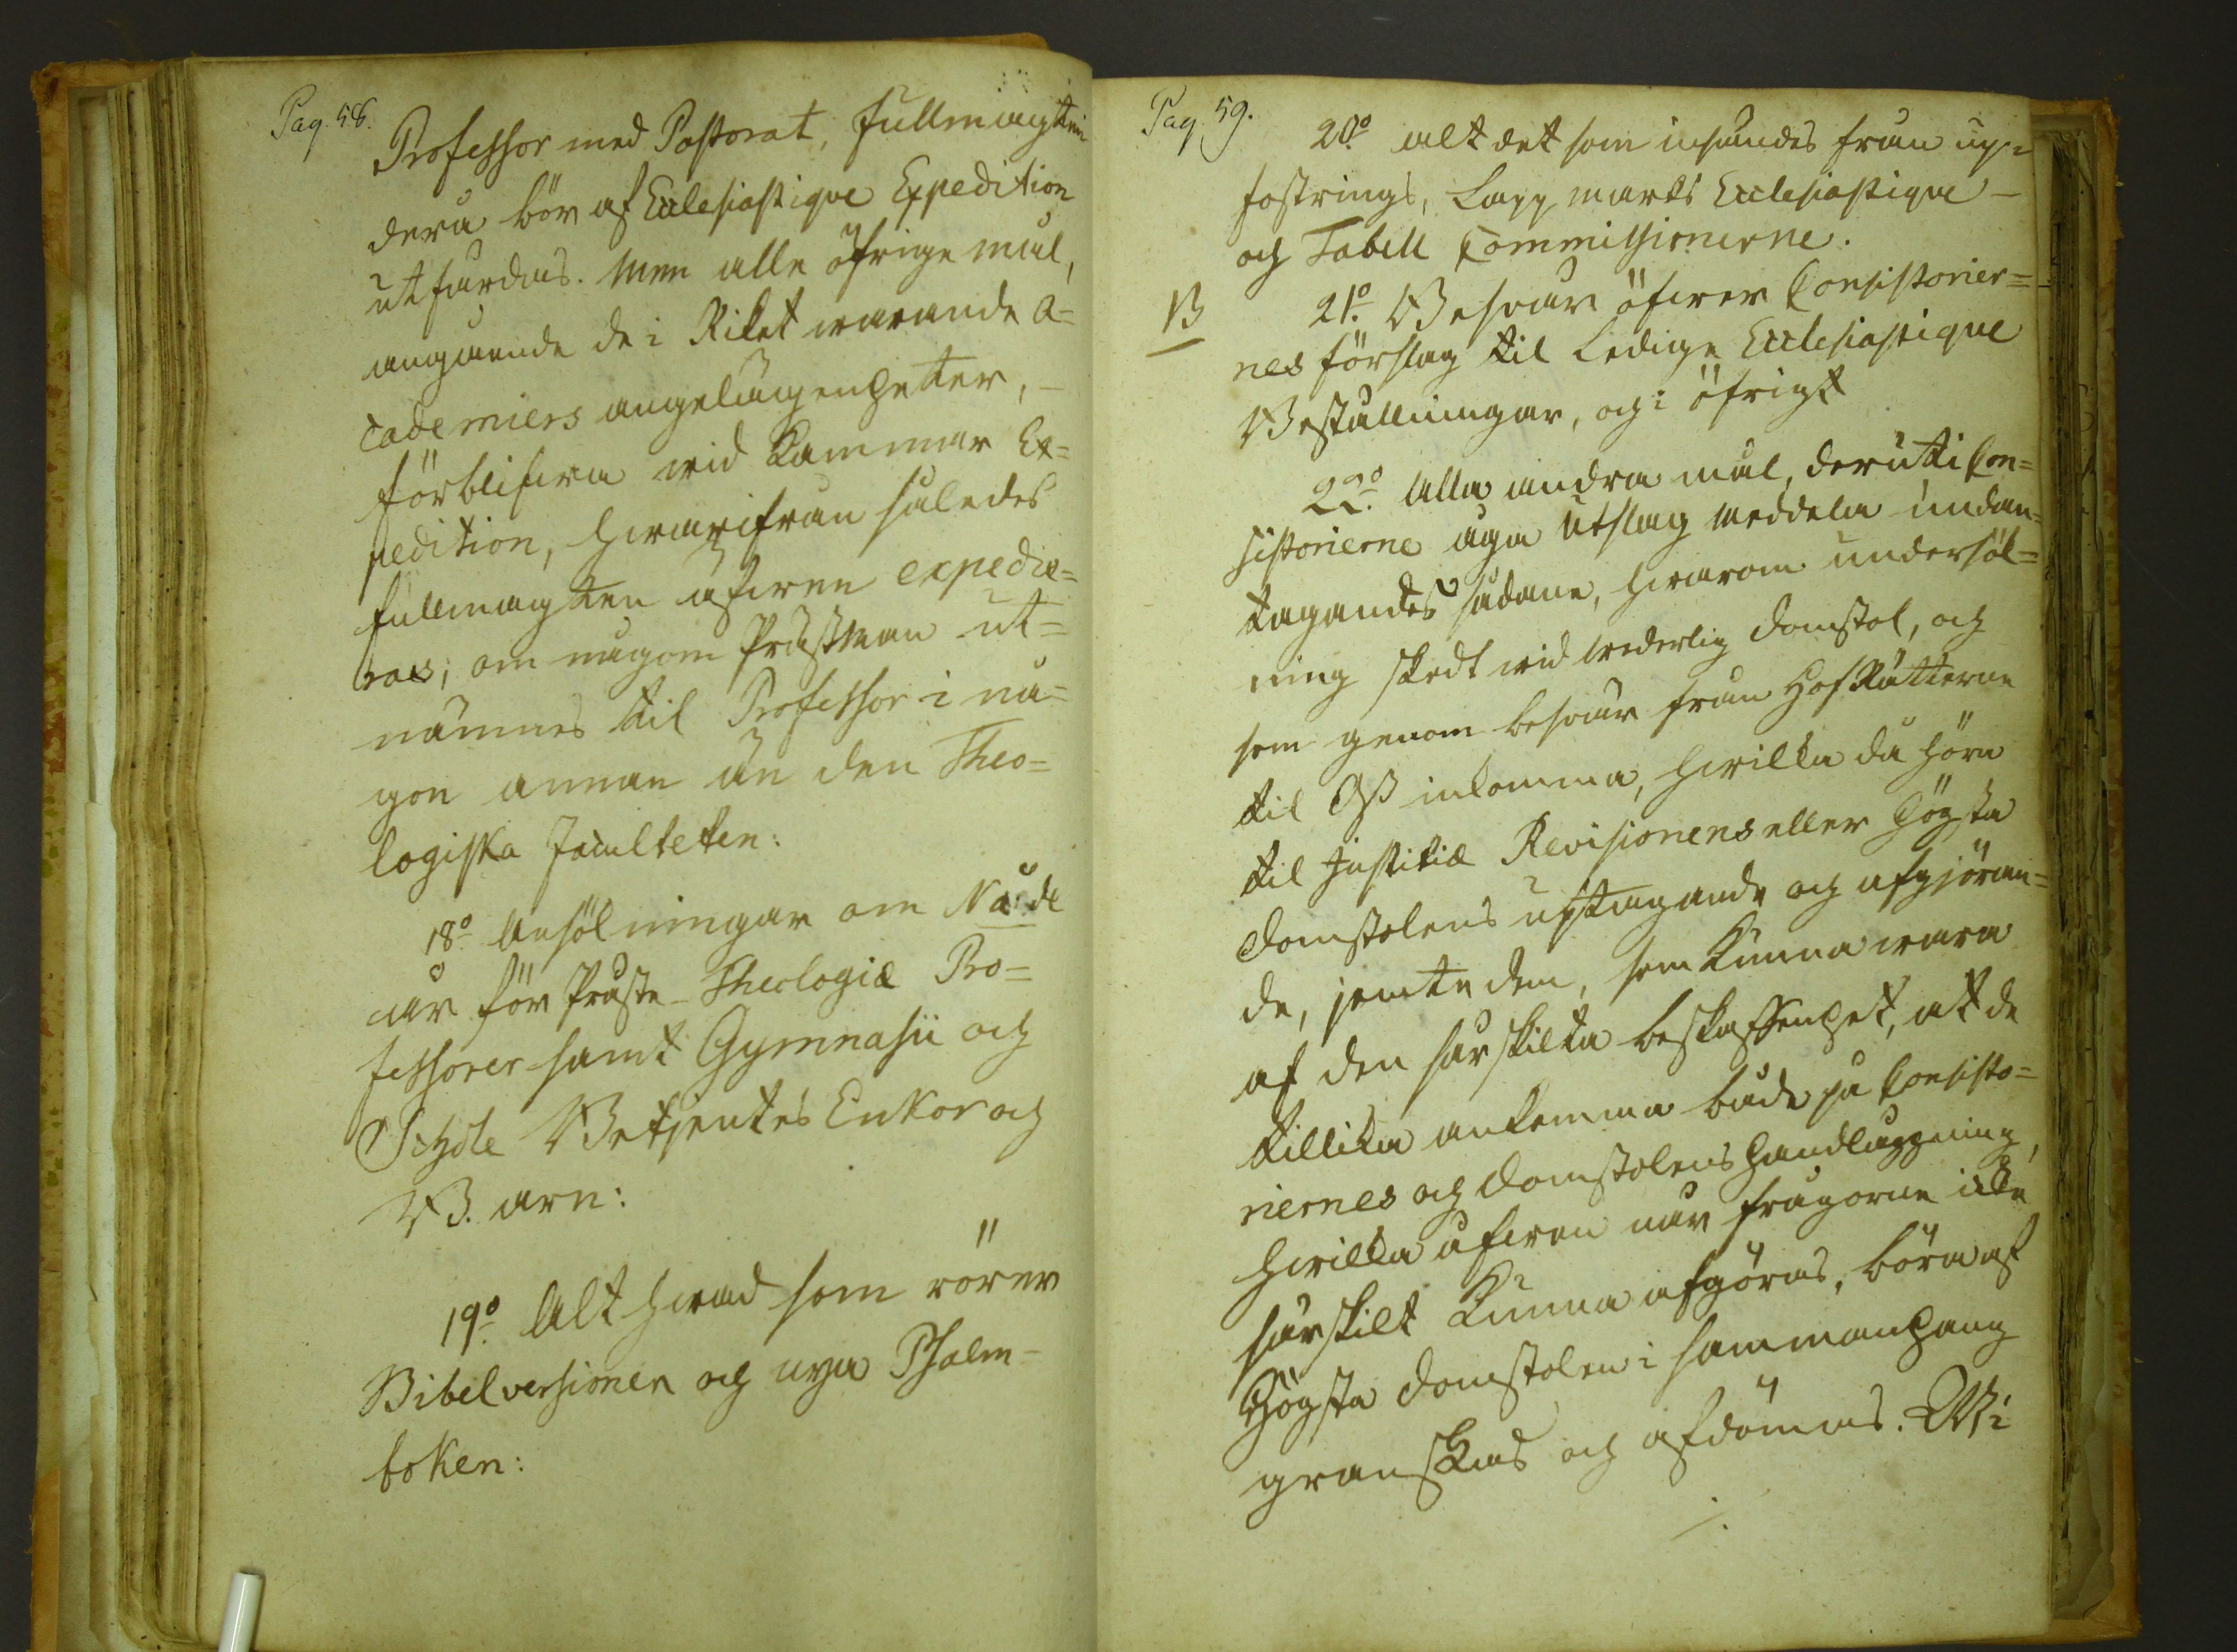 Pag. 58.
Professor med Pastorat, fullmagten
dera bör af Ecclesiastique Expedition
utfärdas. Men alle öfrige mål,
angående de i Riket warande A=
cademiers angelägenheter, –
förblifwa wid Kammar Ex=
pedition, hwarifrån således
fullmagten äfwen expedie=
ras, om någon Prästman ut=
nämnes til Professor i nå=
gon annan än den Theo=
logiska Faculteten:
18º Ansökningar om Nåde
år för Präste- Theologiæ Pro=
fessorer samt Gymnasii och
Schole Betjentes Enkor och
B. arn:
19º Alt hwad som rörer
Bibelversionen och nya Psalm-
boken:
Pag. 59.
20º alt det som insändes från up=
fostrings, Lappmarks Ecclesiastique –
och Tabell Commissionerne.
B
21º Beswär öfwer Consistorier=
nes förslag til Ledige Ecclesiastique
Beställningar, och i öfrigt
22º Alla andra mål, deruti Con=
sistorierne äga utslag meddela undan=
tagandes sådane, hwarom undersök=
ning skedt wid wederlig domstol, och
som genom beswär från HofRätterne
til Oss inkomma, hwilka då höra
til Justitiæ Revisionens eller Högsta
domstolens uptagande och afgjöran=
de, jemte dem, som kunna wara
af den särskilta beskaffenhet, at de
tillika ankomma både på Consisto=
riernes och domstolens handläggning,
hwilka äfwen när frågorne icke
särskilt kunna afgöras, böra af
Högsta domstolen i sammanhang
granskas och afdömas. Wi